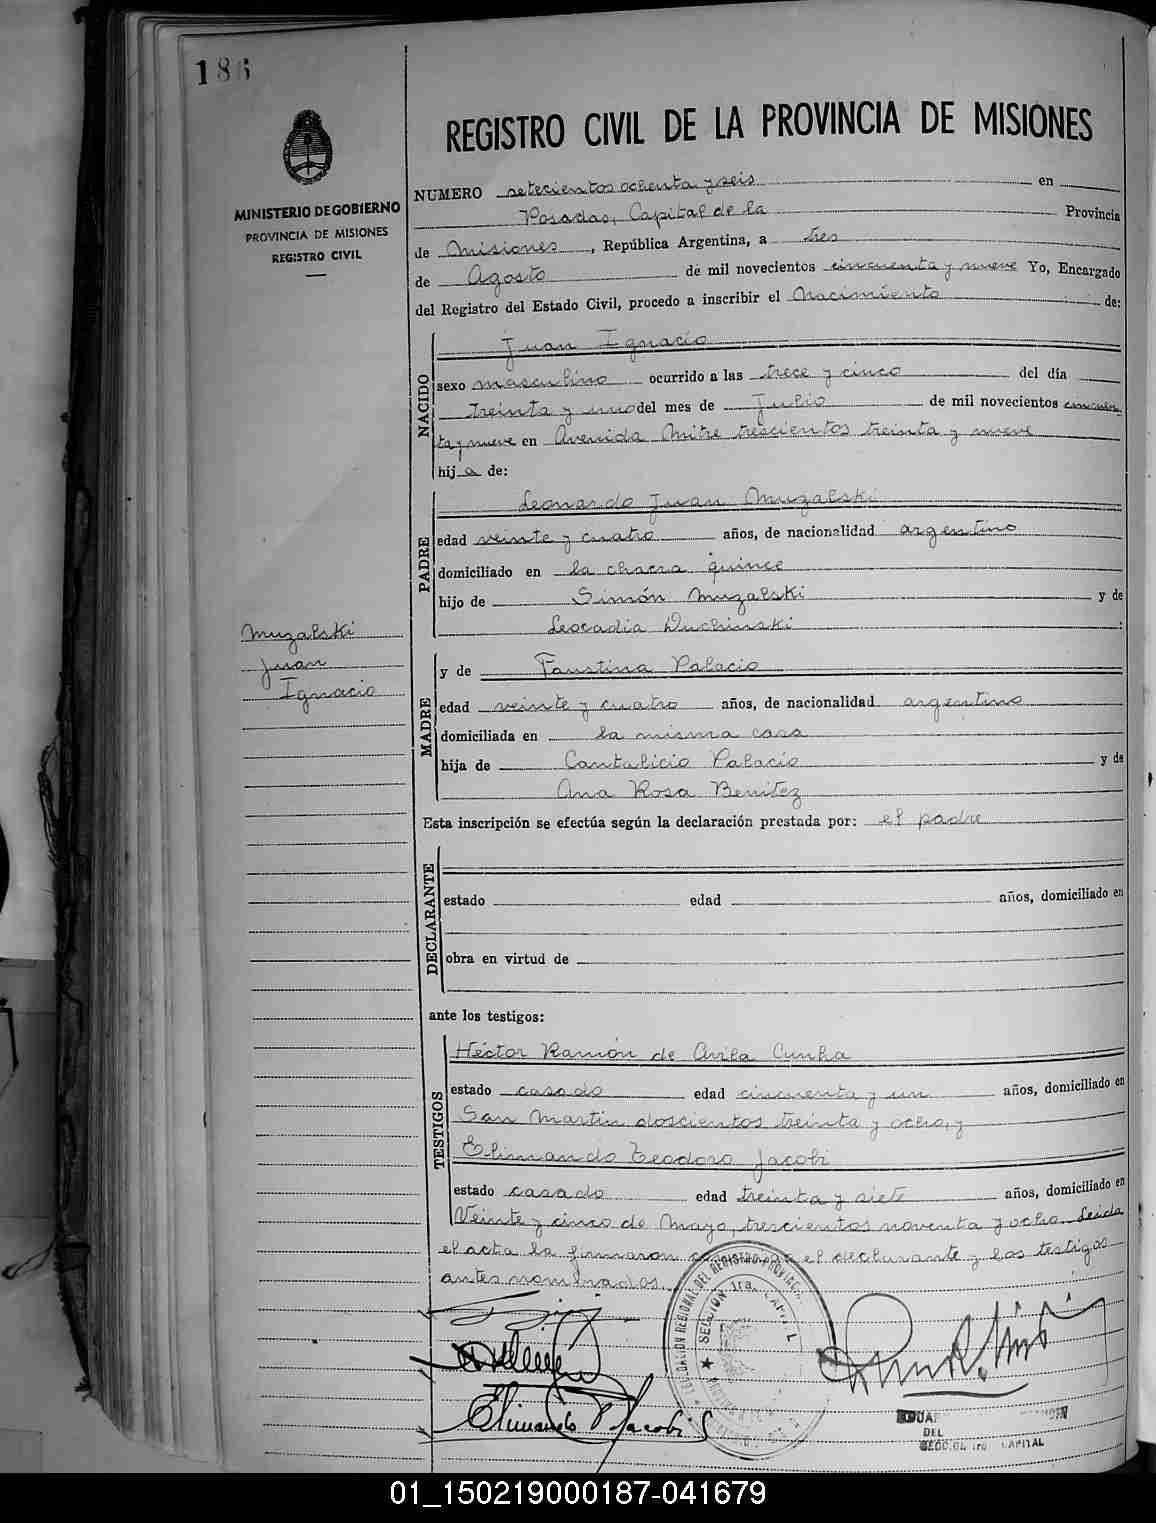 186
MINISTERIO DE GOBIERNO
PROVINCIA DE MISIONES
REGISTRO CIVIL
REGISTRO CIVIL DE LA PROVINCIA DE MISIONES
NUMERO setecientos ochenta y seis en
Posadas, Capital de la Provincia
de Misiones, República Argentina, a tres
de Agosto de mil novecientos cincuenta y nueve Yo, Encargado
del Registro del Estado Civil, procedo a inscribir el Nacimiento de:
NACIDO
Juan Ignacio
sexo masculino ocurrido a las trece y cinco del día
treinta y uno del mes de Julio de mil novecientos cincuen
ta y nueve en Avenida Mitre trescientos treinta y nueve
hijo de:
PADRE
Leonardo Juan Muzalski
edad veinte y cuatro años, de nacionalidad argentino
domiciliado en la chacra quince
hijo de Simón Muzalski y de
Leocadia Duchinski
Muzalski
Juan
Ignacio
MADRE
y de Faustina Palacio
edad veinte y cuatro años, de nacionalidad argentino
domiciliada en la misma casa
hija de Cantalicio Palacio y de
Ana Rosa Benitez
Esta inscripción se efectúa según la declaración prestada por: el padre
DECLARANTE
estado edad años, domiciliado en
obra en virtud de
ante los testigos:
TESTIGOS
Héctor Ramón de Avila Cunha
estado casado edad cincuenta y un años, domiciliado en
San Martin doscientos treinta y ocho, y
Elimando Teodoro Jacobi
estado casado edad treinta y siete años, domiciliado en
Veinte y cinco de Mayo, trescientos noventa y ocho. Leida
el acta la firmaron el declarante y los testigos
antes nombrados.
DELEGACION REGIONAL DEL REGISTRO PROVINCIAL
SECCION 1ra. CAPITAL
Elimando T Jacobi
DEL
CAPITAL
01_150219000187-041679